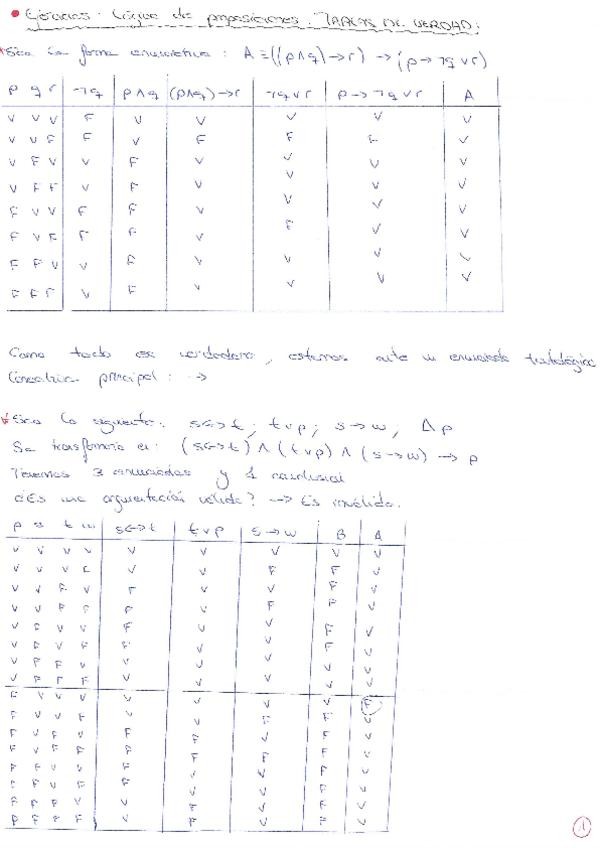 • Ejercicios: Lógica de proposiciones. TABLAS DE VERDAD:
* Sea la forma enunciativa: A ≡ ((p∧q)→r) → (p→¬q∨r)
p q r ¬q p∧q (p∧q)→r ¬q∨r p→¬q∨r A
V V V F V V V V V
V V F F V F F F V
V F V V F V V V V
V F F V F V V V V
F V V F F V V V V
F V F F F V F V V
F F V V F V V V V
F F F V F V V V V
Como todo es verdadero, estamos ante un enunciado tautológico
Conectiva principal: →
* Sea lo siguiente: s↔t; t∨p; s→w, Δp
Se transforma en: (s↔t)∧(t∨p)∧(s→w)→p
Tenemos 3 enunciados y 1 conclusión
¿Es una argumentación válida? → Es inválida.
p s t w s↔t t∨p s→w B A
V V V V V V V V V
V V V F V V F F V
V V F V F V V F V
V V F F F V F F V
V F V V F V V F V
V F V F F V V F V
V F F V V V V V V
V F F F V V V V V
F V V V V V V V F
F V V F V V F F V
F V F V F F V F V
F V F F F F F F V
F F V V F V V F V
F F V F F V V F V
F F F V V F V F V
F F F F V F V F V
1